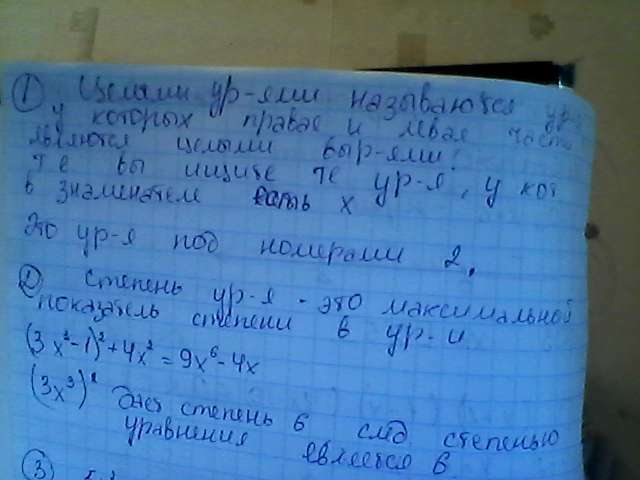 ① Целыми ур-ями называются ур-я
у которых правая и левая часть
являются целыми выр-ями.
те вы ищите те ур-я, у кот
в знаменателе есть х
Это ур-я под номерами 2,
② степень ур-я - это максимальной
показатель степени в ур-и
(3x³-1)²+4x²=9x⁶-4x
(3x³)² дает степень 6 след степенью
уравнения является 6
③